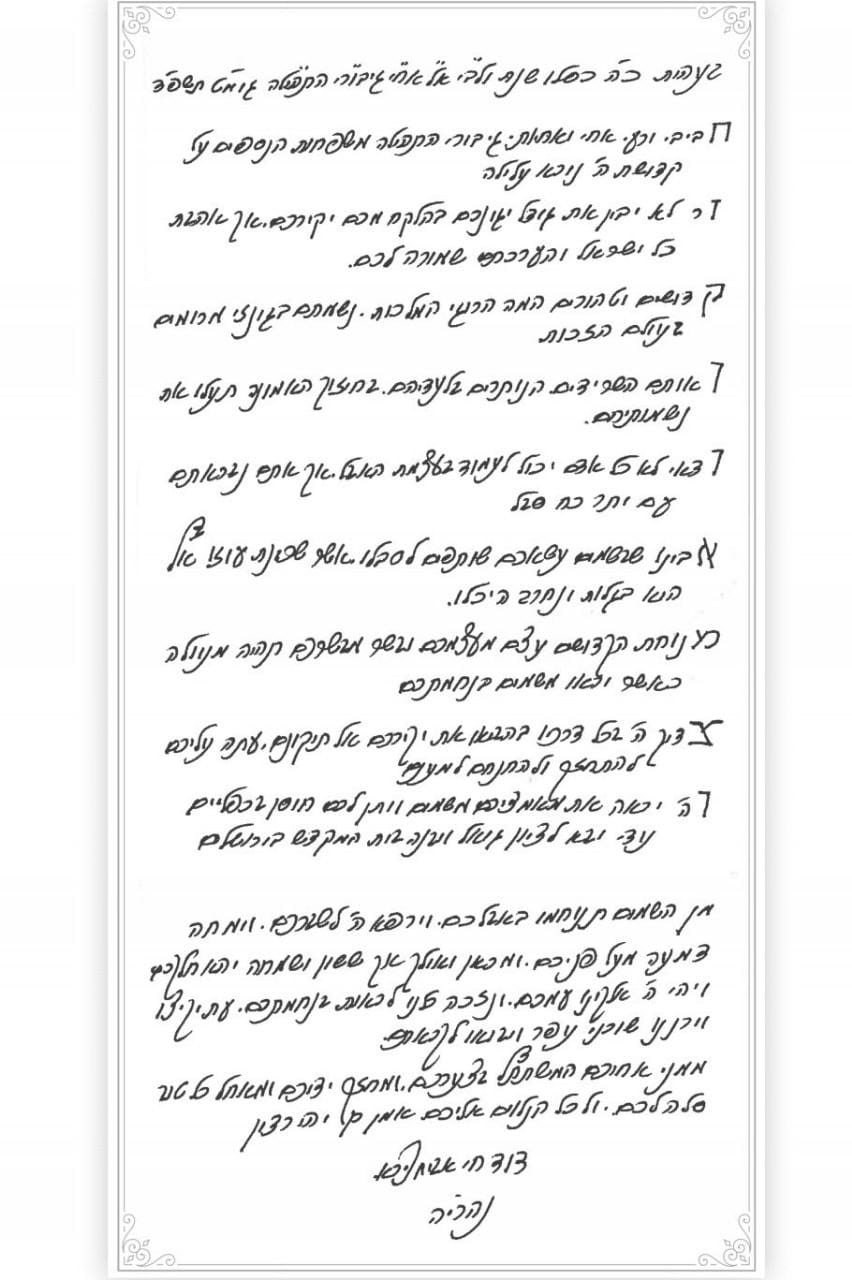 בעהית כ״ה כסלו שנת ולבי אל אחי גיבורי התהילה גומ״ט תשפ״ד
חביבי ורעי אחי ואחיותי גיבורי התהילה משפחות הנספים על
קדושת ה׳ נורא עלילה
זר לא יבין את גודל יגונכם בהלקח מכם יקירכם. אך אהבת
כל ישראל והערכתם שמורה לכם.
קדושים וטהורים המה הרוגי המלכות. נשמתם בגנזי מרומים
בעולם הזכות
ואותם השרידים הנותרים בלעדיהם. בחזוק האמונה תעלו את
נשמותיהם.
ודאי לא כל אדם יכול לעמוד בעצמת האבל. אך אתם נבראתם
עם יתר כח סבל
אבינו שבשמים עשאכם שותפים לסבלו. אשר שכינת עוזו אל
הוא בגלות ונחרב היכלו.
מנוחת הקדושים עצם מעצמכם ובשר מבשרכם תהיה מעולה
כאשר יראו משמים בנחמתכם
צדיק ה׳ בכל דרכיו בהביאו את יקירכם אל תיקונם. עתה עליכם
להתחזק ולהתנחם למענם
וה׳ יראה את מאמציכם משמים ויתן לכם חוסן בכפליים
ובא לציון גואל ובנה בית המקדש בירושלים
מן השמים תנוחמו באבלכם. וירפא ה׳ לשברכם. וימחה
דמעה מעל פניכם. ומכאן ואילך אך ששון ושמחה יהא חלקכם
ויהי ה׳ אלקינו עמכם. ונזכה כולנו לראות בנחמתכם. עת יקיצו
וירננו שוכני עפר ויבואו לקראתם.
ממני אחיכם המשתתף בצערכם. ומחזק ידיכם ומאחל כל טוב
סלה לכם. ולכל הנלוים אליכם אמן כן יהי רצון
דוד חי אבוחצירא
נהריה